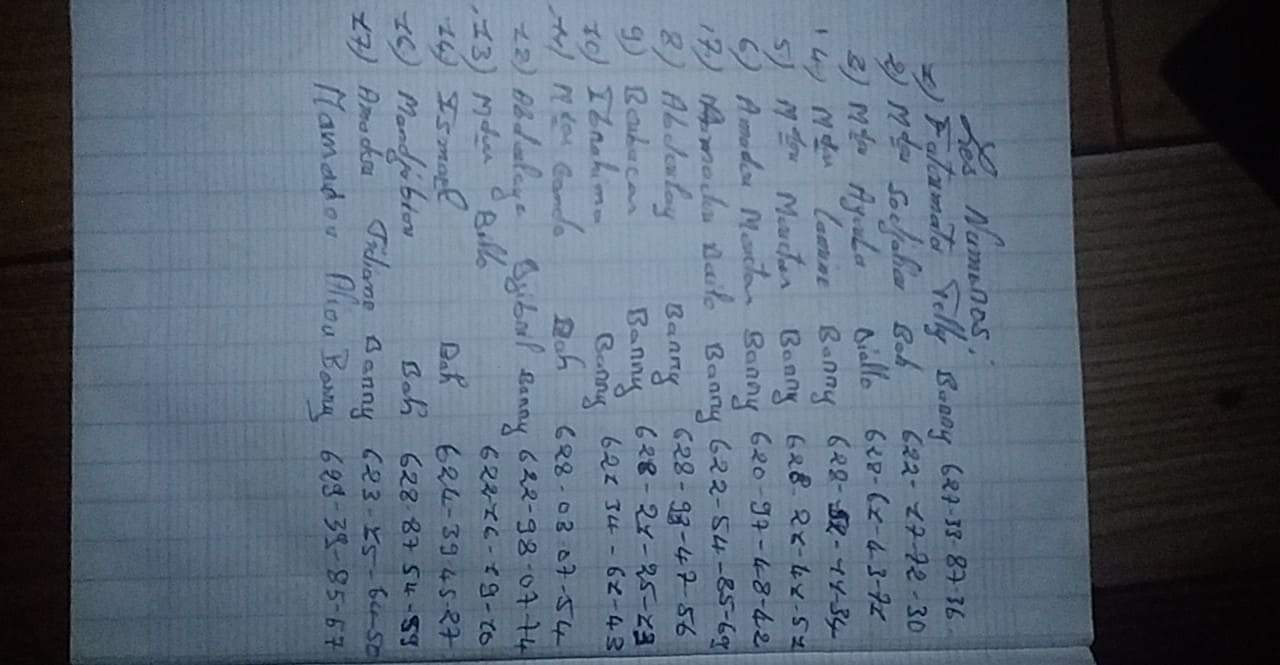 Les Numeros:
1) Fatoumata Telly Barry 627-33-87-36
2) Mdou Bah 622-17-72-30
3) Mdou Ayuba Diallo 628-61-43-71
4) Mdou Lamine Barry 628- -11-34
5) Mdou Mouctar Barry 628-21-41-51
6) Amadou Mouctar Barry 620-97-48-42
7) Amadou Bailo Barry 622-54-85-69
8) Abdoulay Barry 628-93-47-56
9) Boubacar Barry 628-21-25-13
10) Ibrahima Barry 621 34-61-43
11) Mdou Gando Bah 628-03-07-54
12) Abdoulaye Djibril Barry 622-98-07-74
13) Mdou Bello 622-16-19-10
14) Ismael Bah 624-39 45-27
16) Mandjobiou Bah 628-87 54-59
17) Amadou Tidiane Barry 623-15-64-50
Mamadou Aliou Barry 629-39-85-67